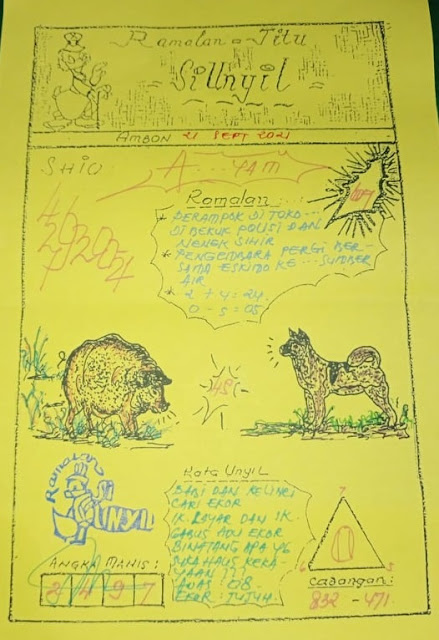 Ramalan = Titu
SiUnyil
AMBON 21 SEPT 2021
SHIO
A...YAM
Ramalan...:
* PERAMPOK DI TOKO...
DI BEKUK POLISI DAN
NENEK SIHIR
* PENGEMBARA PERGI BER-
SAMA ESKIMO KE... SUMBER
AIR
* 2 + 4 = 24.
0 - 5 = 05
Ramalan
SI
UNYIL
Kata Unyil
BABI DAN KELINCI
CARI EKOR
IK. LAYAR DAN IK.
GABUS ADU EKOR
BINATANG APA YG
SUKA HAUS KEKA-
YAAN !!
AWAS 08.
EKOR : TUJUH.
ANGKA MANIS :
3 4 9 7
7
0
6
8
CADANGAN :
832 - 471.